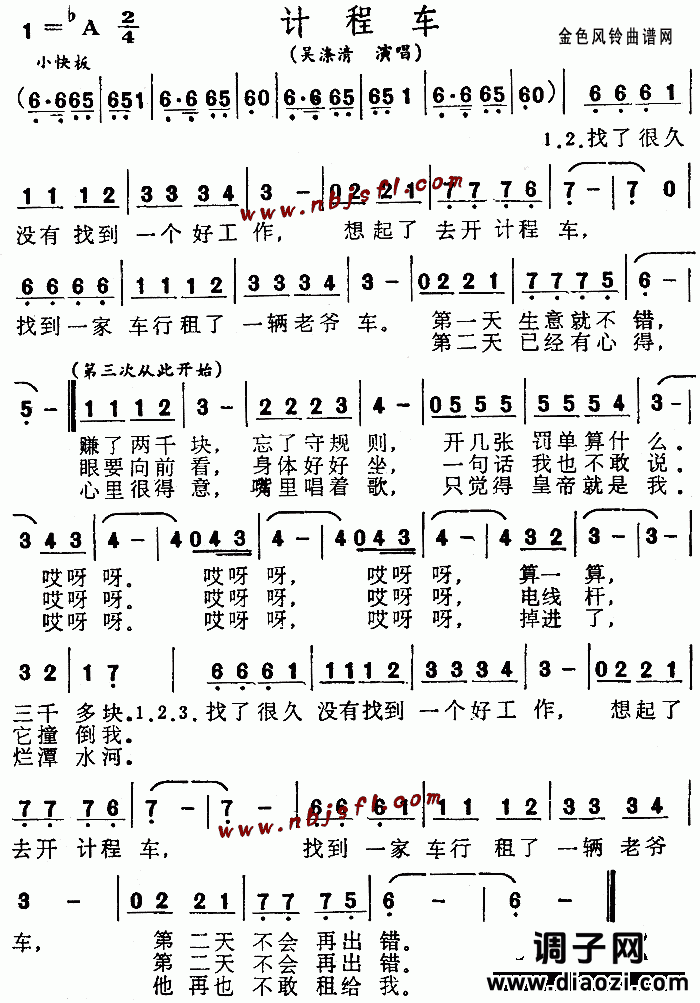 计 程 车
1=♭A 2/4
(吴涤清 演唱)
金色风铃曲谱网
小快板
(6·665 | 651 | 6·665 | 60 | 6·665 | 651 | 6·665 | 60) | 6 6 6 1 |
1.2.找了很久
1 1 1 2 | 3 3 3 4 | 3 - | 02 21 | 7 7 7 6 | 7 - | 7 0 |
www.nbjsfl.com
没有 找到 一个 好工 作, 想起了 去开计程 车,
6 6 6 6 | 1 1 1 2 | 3 3 3 4 | 3 - | 0 2 2 1 | 7 7 7 5 | 6 - |
找到一家 车行租了 一辆老爷 车。 第一天 生意就不 错,
第二天 已经有心 得,
(第三次从此开始)
5 - ‖ 1 1 1 2 | 3 - | 2 2 2 3 | 4 - | 0 5 5 5 | 5 5 5 4 | 3 - |
赚了两千 块, 忘了守规 则, 开几张 罚单算什 么。
眼要向前 看, 身体好好 坐, 一句话 我也不敢 说。
心里很得 意, 嘴里唱着 歌, 只觉得 皇帝就是 我。
3 43 | 4 - | 4 043 | 4 - | 4 043 | 4 - | 4 32 | 3 - | 3 - |
哎呀 呀。 哎呀 呀, 哎呀 呀, 算一 算,
哎呀 呀。 哎呀 呀, 哎呀 呀, 电线 杆,
哎呀 呀。 哎呀 呀, 哎呀 呀, 掉进 了,
3 2 | 1 7 | 6 6 6 1 | 1 1 1 2 | 3 3 3 4 | 3 - | 0 2 2 1 |
三千 多块.1.2.3.找了很久 没有找到 一个好工 作, 想起了
它撞 倒我。
烂潭 水河。
77 76 | 7 - | 7 - | 66 61 | 11 12 | 33 34 |
www.nbjsfl.com
去开 计程 车, 找到 一家 车行 租了 一辆 老爷
3 - | 02 21 | 77 75 | 6 - | 6 - ‖
车, 第 二天 不会 再出 错。
第 二天 不会 再出 错。
他 再也 不敢 租给 我。
调子网
www.diaozi.com